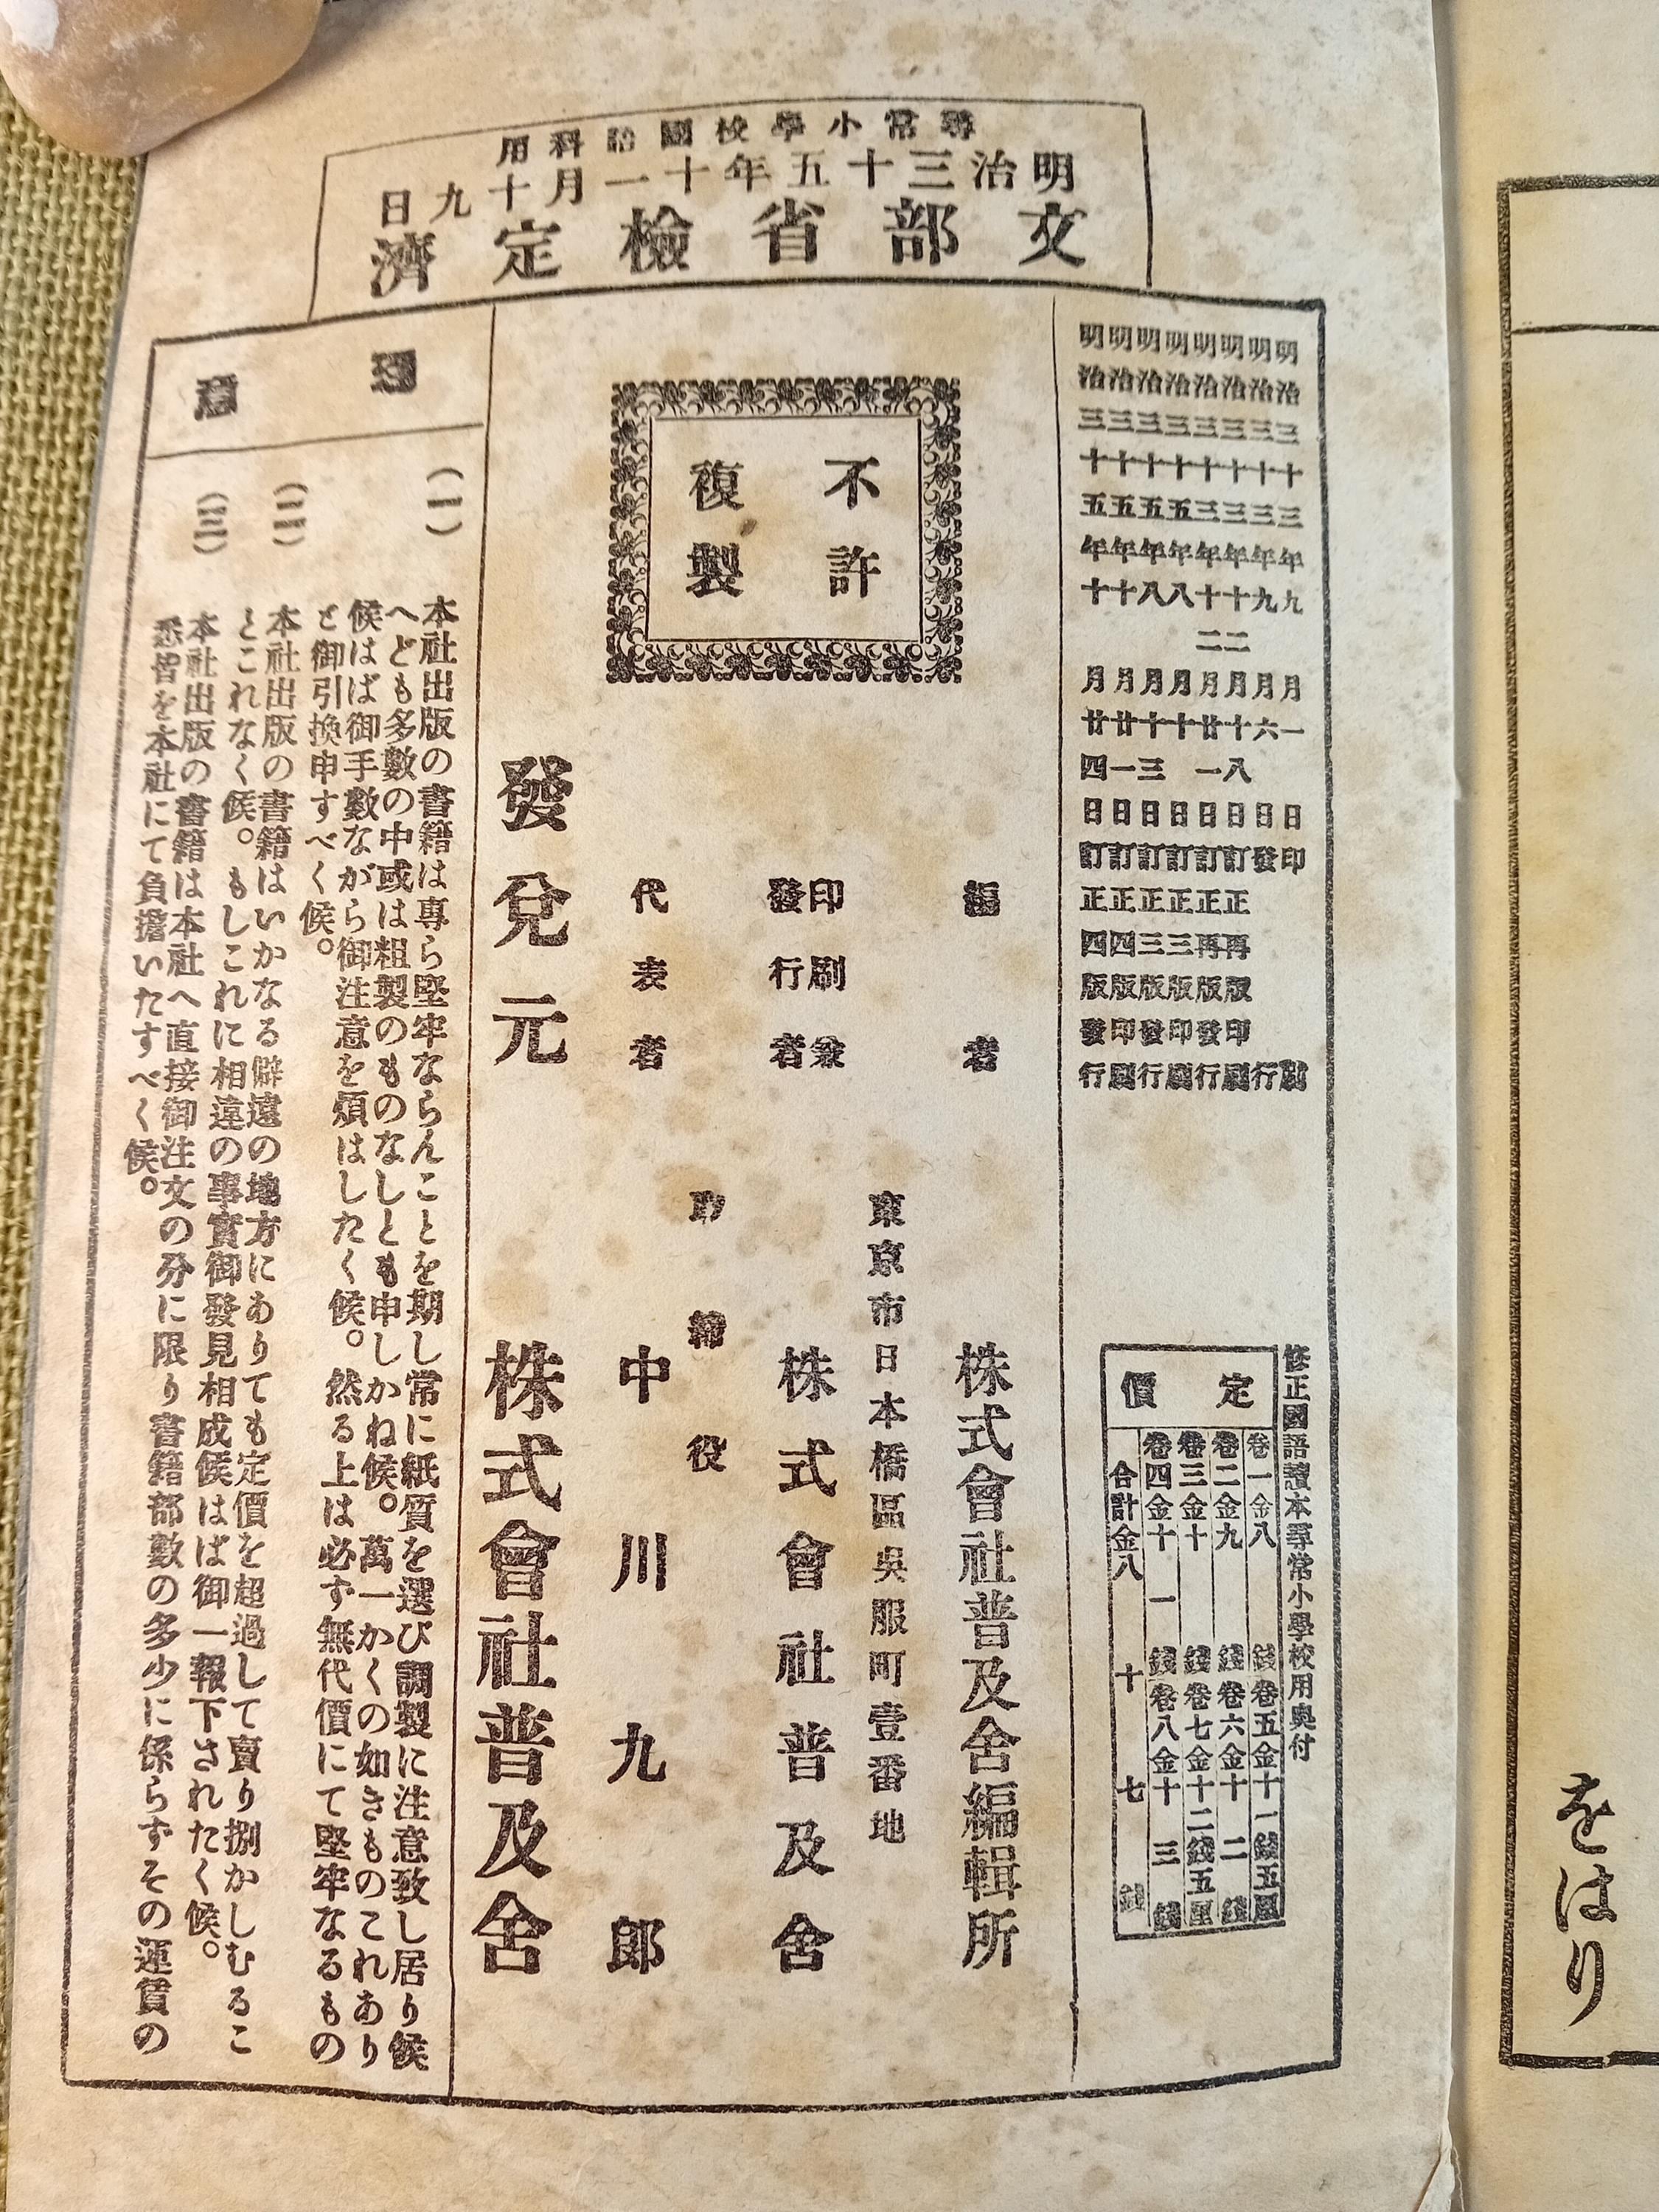 尋常小學校國語科用
明治三十五年十一月十九日
文部省檢定濟
明治三十三年九月一日印刷
明治三十三年九月六日發行
明治三十三年十二月十八日訂正再版印刷
明治三十三年十二月廿一日訂正再版發行
明治三十五年八月十日訂正三版印刷
明治三十五年八月十三日訂正三版發行
明治三十五年十月廿一日訂正四版印刷
明治三十五年十月廿四日訂正四版發行
修正國語讀本尋常小學校用奥付
定價
卷一金八錢
卷五金十一錢五厘
卷二金九錢
卷六金十二錢
卷三金十錢
卷七金十二錢五厘
卷四金十一錢
卷八金十三錢
合計金八十七錢
不許
複製
編者
株式會社普及舍編輯所
東京市日本橋區吳服町壹番地
印刷兼
發行者
株式會社普及舍
取締役
代表者
中川九郎
發兌元
株式會社普及舍
注意
(一)
本社出版の書籍は專ら堅牢ならんことを期し常に紙質を選び調製に注意致し居り候
へども多數の中或は粗製のものなしとも申しかね候。萬一かくの如きものこれあり
候はば御手數ながら御注意を煩はしたく候。然る上は必ず無代價にて堅牢なるもの
と御引換申すべく候。
(二)
本社出版の書籍はいかなる僻遠の地方にありても定價を超過して賣り捌かしむるこ
とこれなく候。もしこれに相違の事實御發見相成候はば御一報下されたく候。
(三)
本社出版の書籍は本社へ直接御注文の分に限り書籍部數の多少に係らずその運賃の
悉皆を本社にて負擔いたすべく候。
をはり